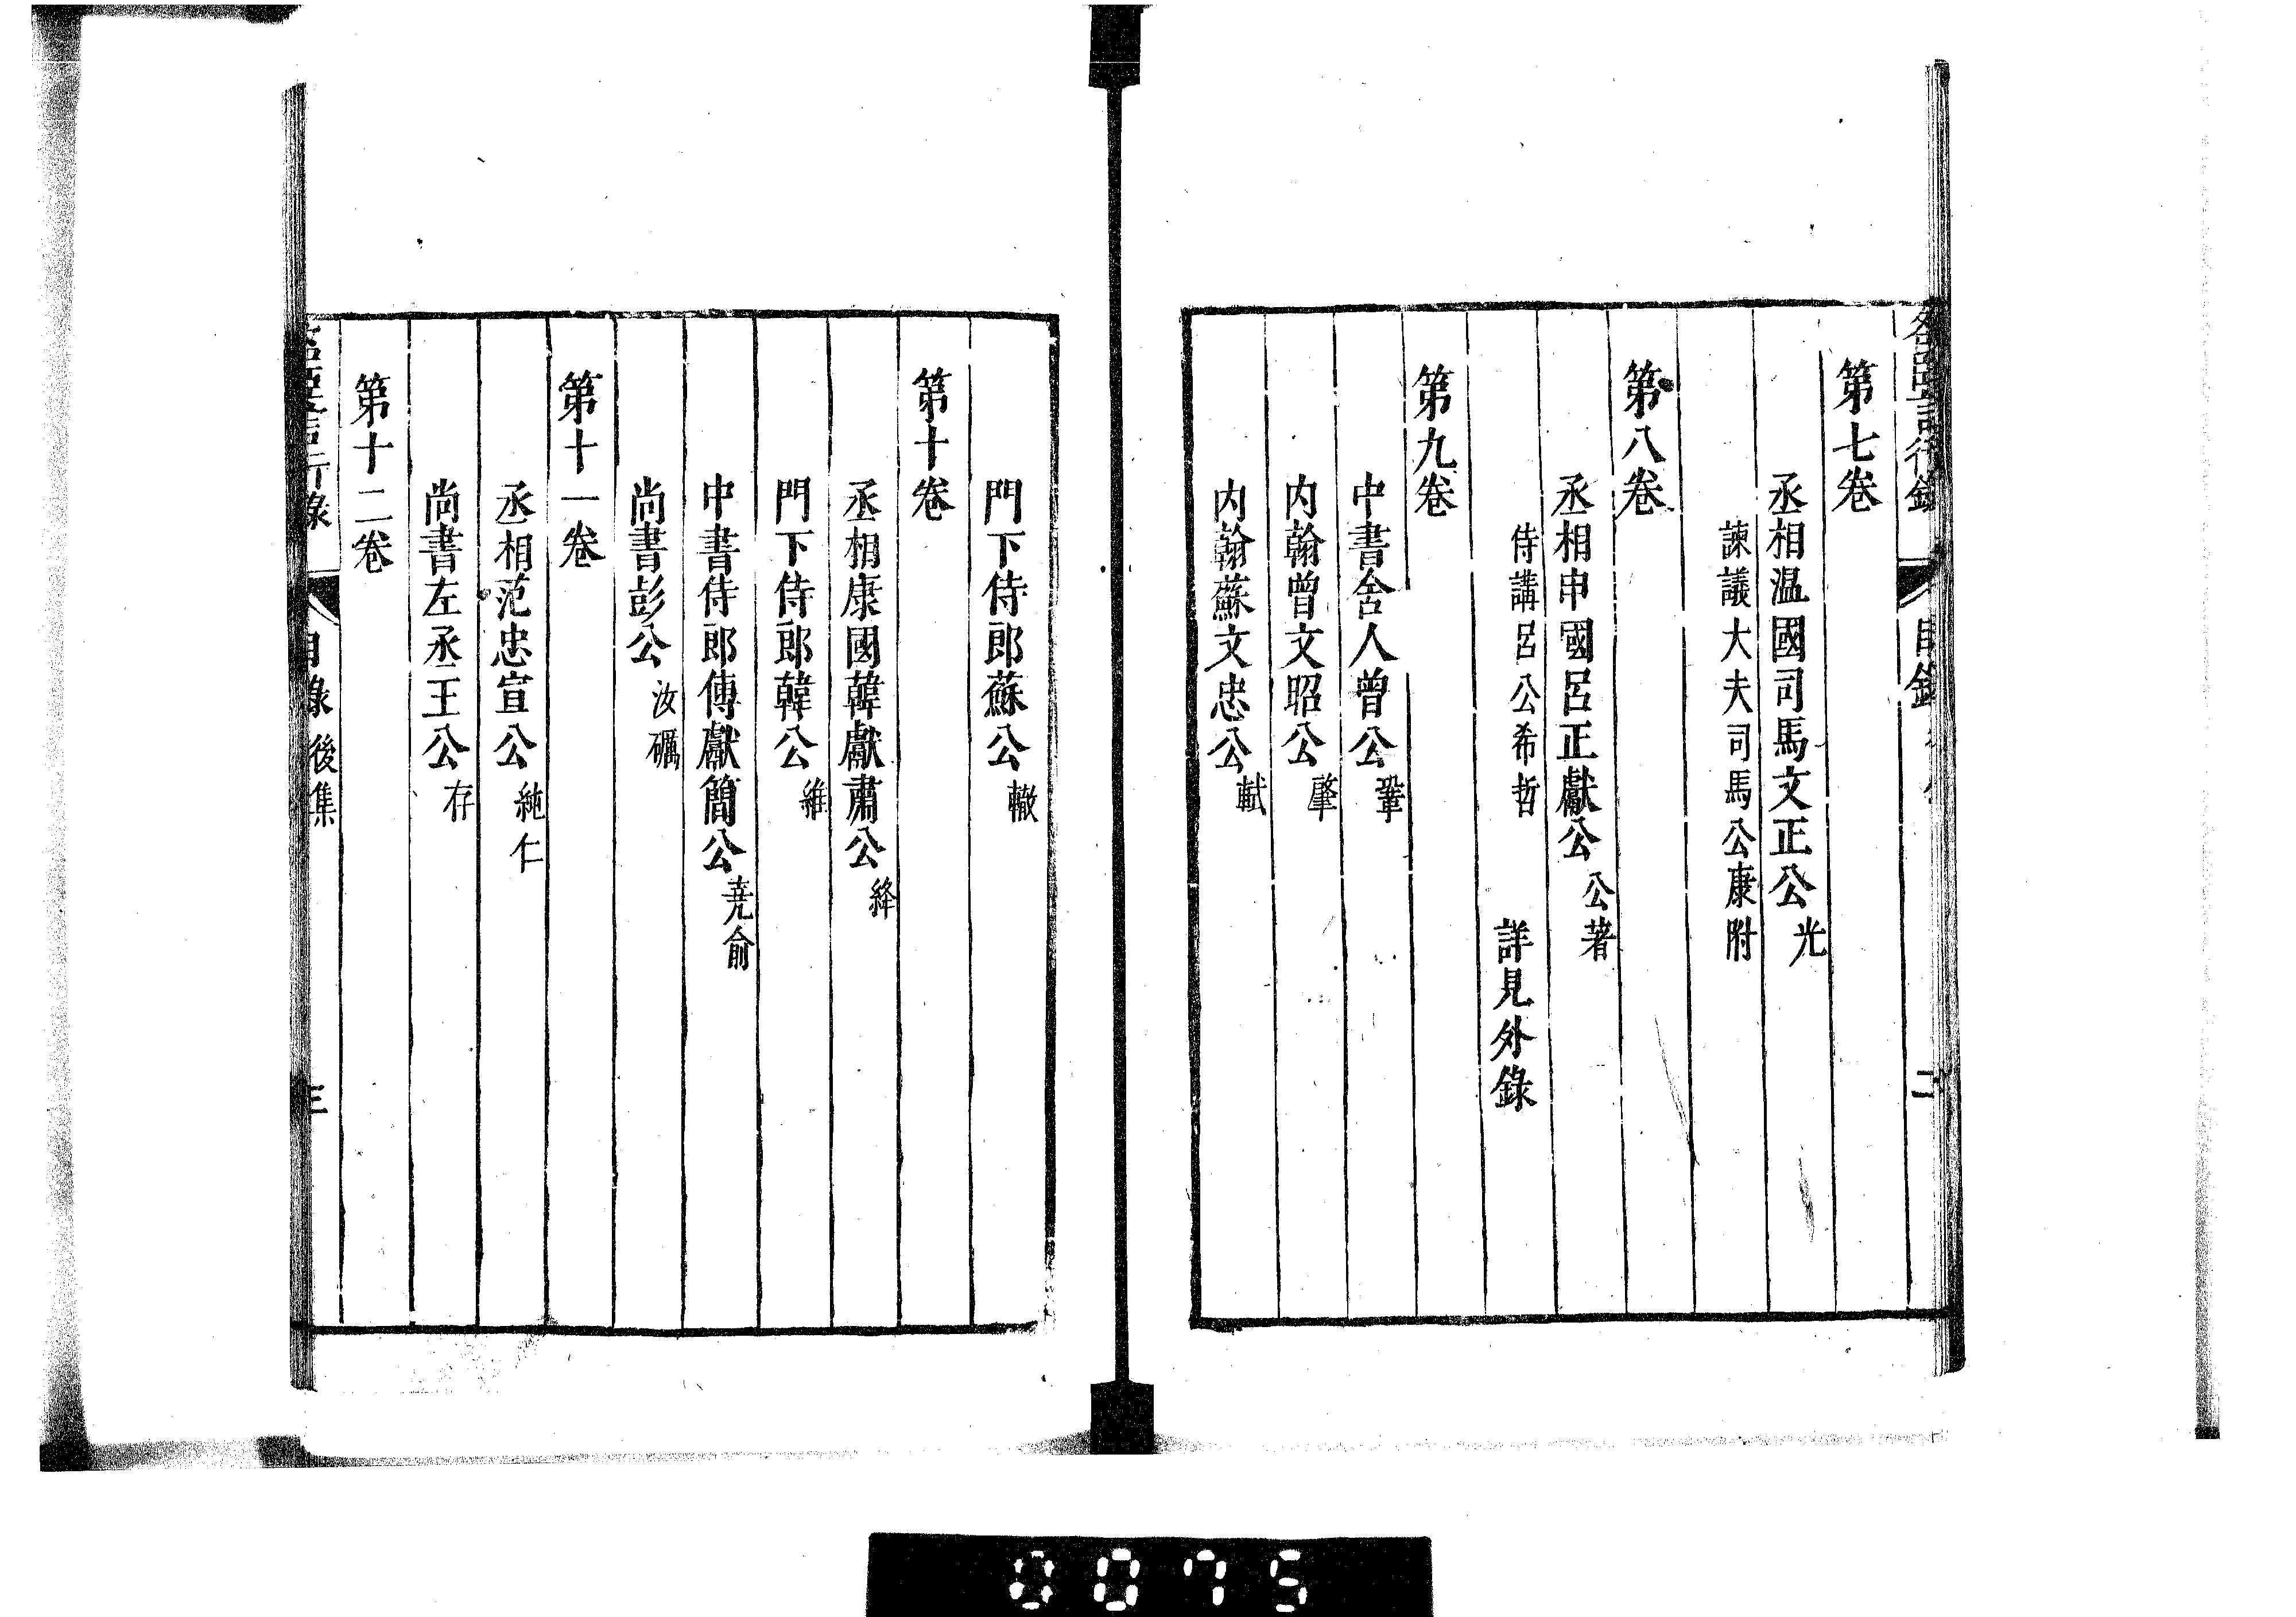 名臣言行錄 目錄 二
第七卷
丞相溫國司馬文正公光
諫議大夫司馬公康附
第八卷
丞相申國呂正獻公公著
侍講呂公希哲 詳見外錄
第九卷
中書舍人曾公鞏
内翰曾文昭公肇
内翰蘇文忠公軾
門下侍郎蘇公轍
第十卷
丞相康國韓獻肅公絳
門下侍郎韓公維
中書侍郎傅獻簡公堯俞
尚書彭公汝礪
第十一卷
丞相范忠宣公純仁
尚書左丞王公存
第十二卷
名臣言行錄 目錄 後集 三
0075